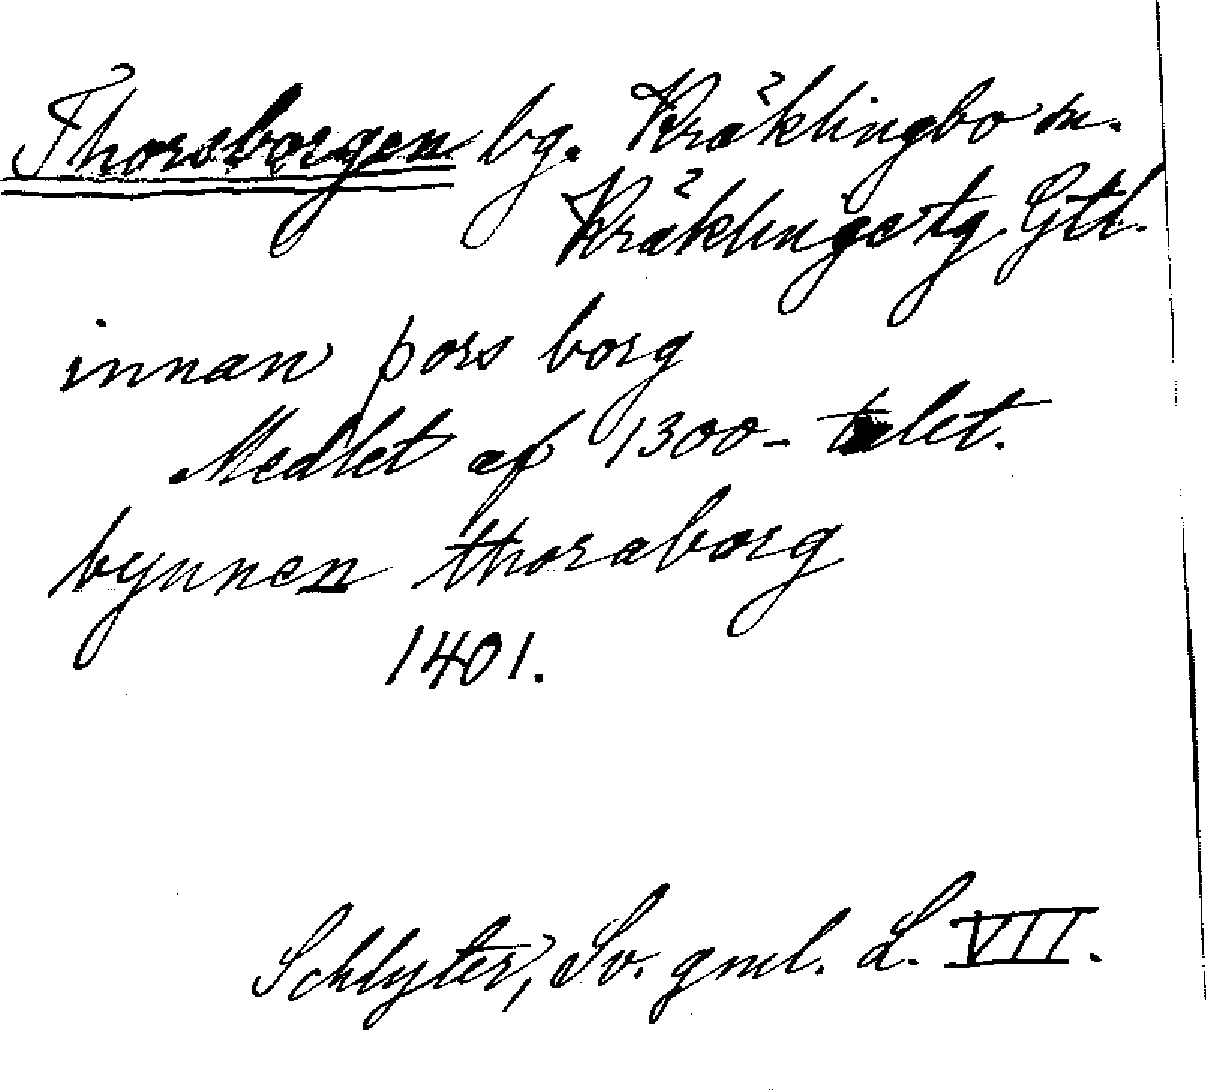 Thorsborgen bg. Kräklingbo sn.
Kräklinge tg. Gtl.
innan þors borg
Medlet af 1300-talet.
bynnen thoraborg
1401.
Schlyter, Sv. gml. L. VII.